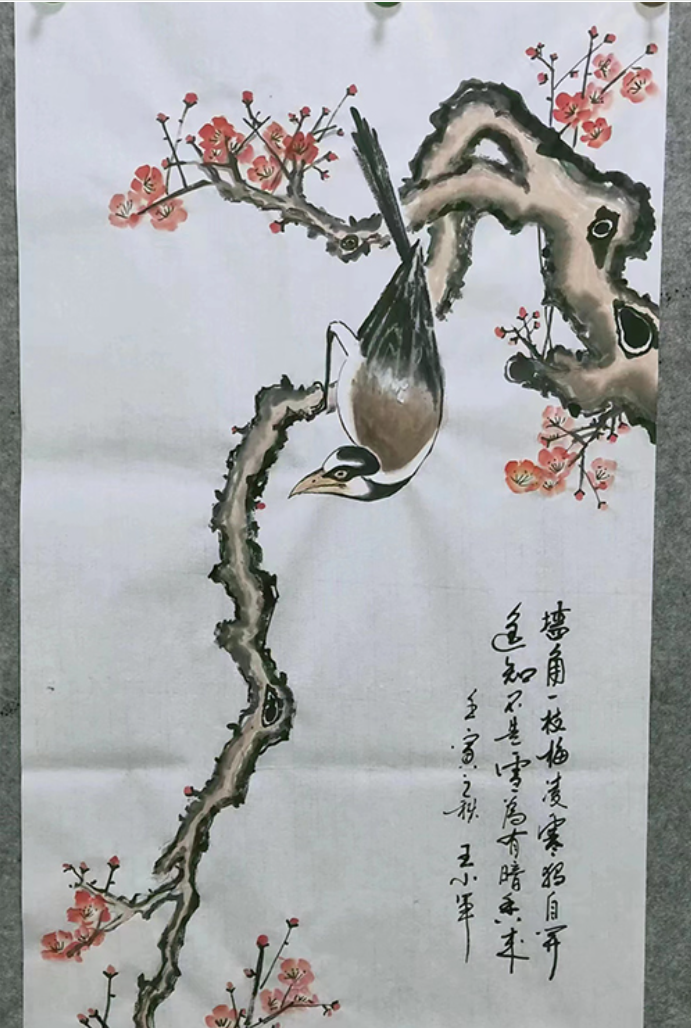 墙角一枝梅凌寒独自开
遥知不是雪为有暗香来
壬寅之秋 王小军